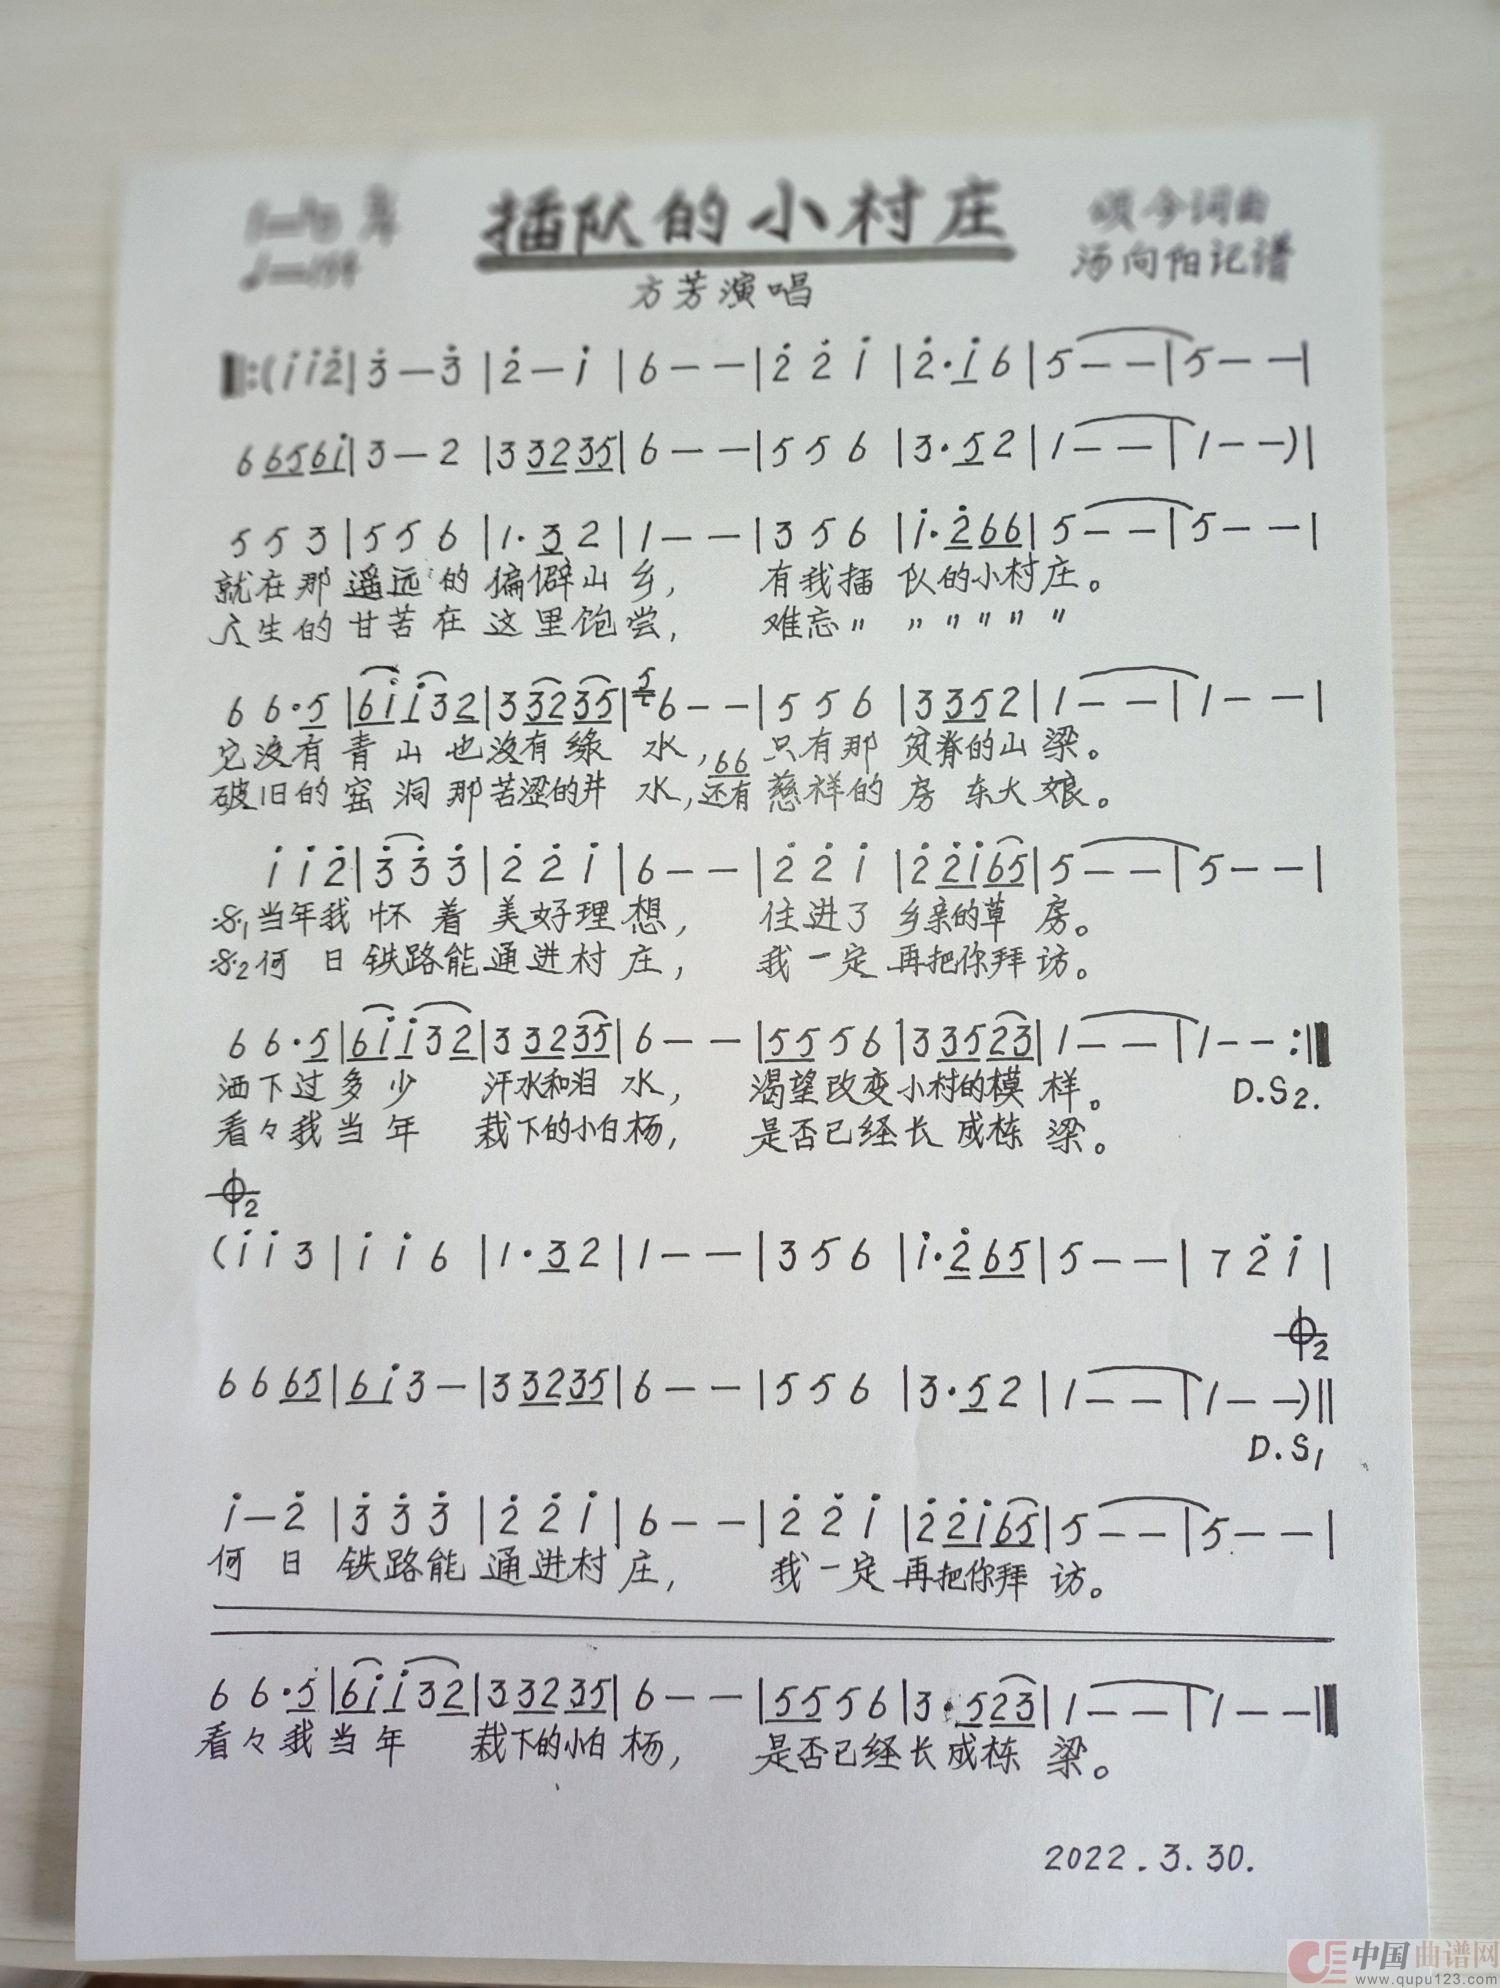 插队的小村庄
颂今词曲
汤向阳记谱
方芳演唱
‖:(i̇ i̇ 2̇|3̇ — 3̇|2̇ — i̇|6 — —|2̇ 2̇ i̇|2̇· i̇ 6|5 — —|5 — —|
6 656i̇|3 — 2|3 3235|6 — —|5 5 6|3· 5 2|1 — —|1 — —)|
5 5 3|5 5 6|1· 3 2|1 — —|3 5 6|i̇· 2̇66|5 — —|5 — —|
就在那遥远的偏僻山乡, 有我插队的小村庄。
人生的甘苦在这里饱尝, 难忘〃 〃〃〃〃〃
6 6· 5|6i̇ i̇32|3 3235|5 6 — —|5 5 6|3 352|1 — —|1 — —|
它没有青山也没有绿水, 只有那贫脊的山梁。
66
破旧的窑洞那苦涩的井水, 还有慈祥的房东大娘。
i̇ i̇ 2̇|3̇ 3̇ 3̇|2̇ 2̇ i̇|6 — —|2̇ 2̇ i̇|2̇ 2̇i̇65|5 — —|5 — —|
𝄋1当年我怀着美好理想, 住进了乡亲的草房。
𝄋2何日铁路能通进村庄, 我一定再把你拜访。
6 6· 5|6i̇ i̇32|3 3235|6 — —|55 5 6|3 3523|1 — —|1 — — :‖
洒下过多少汗水和泪水, 渴望改变小村的模样。 D.S2.
看々我当年栽下的小白杨, 是否已经长成栋梁。
𝄌2
(i̇ i̇ 3|i̇ i̇ 6|1· 3 2|1 — —|3 5 6|i̇· 2̇65|5 — —|7 2̇ i̇|
𝄌2
6 6 65|6i̇ 3 —|3 3235|6 — —|5 5 6|3· 5 2|1 — —|1 — —)‖
D.S1
i̇ — 2̇|3̇ 3̇ 3̇|2̇ 2̇ i̇|6 — —|2̇ 2̇ i̇|2̇ 2̇i̇65|5 — —|5 — —|
何日铁路能通进村庄, 我一定再把你拜访。
6 6· 5|6i̇ i̇32|3 3235|6 — —|55 5 6|3· 523|1 — —|1 — —‖
看々我当年栽下的小白杨, 是否已经长成栋梁。
2022.3.30.
中国曲谱网
www.qupu123.com